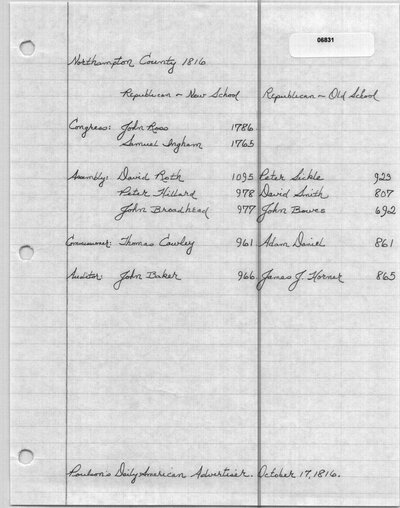 06831
Northampton County 1816
Republican - New School Republican - Old School
Congress: John Ross 1786
Samuel Ingham 1765
Assembly: David Roth 1095 Peter Sickle 923
Peter Hillard 978 David Smith 807
John Broadhead 977 John Bowes 692
Commissioner: Thomas Cawley 961 Adam Daniel 861
Auditor: John Baker 966 James J. Horner 865
Poulson's Daily American Advertiser. October 17, 1816.